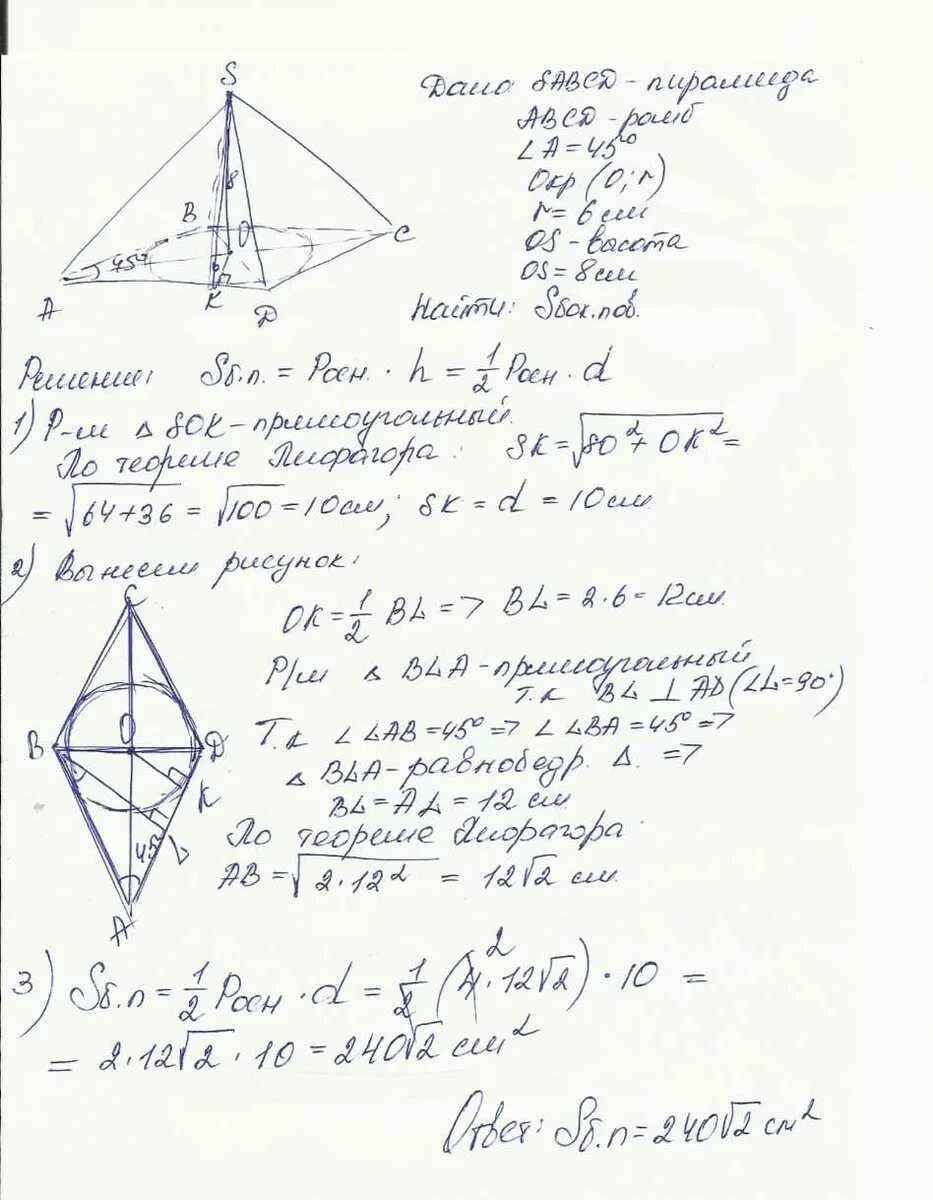 S
Дано: SABCD - пирамида
ABCD - ромб
∠A = 45°
Окр (O; r)
r = 6 см
OS - высота
OS = 8 см
Найти: Sбок.пов.
8
B
O
C
45°
6
A
K
D
Решение: Sб.п. = Pосн. · h = 1/2 Pосн · d
1) Р-м △ SOK - прямоугольный.
По теореме Пифагора: SK = √(SO² + OK²) =
= √(64+36) = √100 = 10 см; SK = d = 10 см
2) Вынесем рисунок:
C
OK = 1/2 BL => BL = 2·6 = 12 см.
Р/м △ BLA - прямоугольный
т.к BL ⊥ AD (∠L = 90°)
Т.к ∠ LAB = 45° => ∠ LBA = 45° =>
△ BLA - равнобедр. △. =>
BL = AL = 12 см.
По теореме Пифагора
AB = √(2·12²) = 12√2 см.
B
O
D
K
L
45°
A
3) Sб.п = 1/2 Pосн · d = 1/2 (4 2 · 12√2) · 10 =
= 2·12√2 · 10 = 240√2 см²
Ответ: Sб.п = 240√2 см²